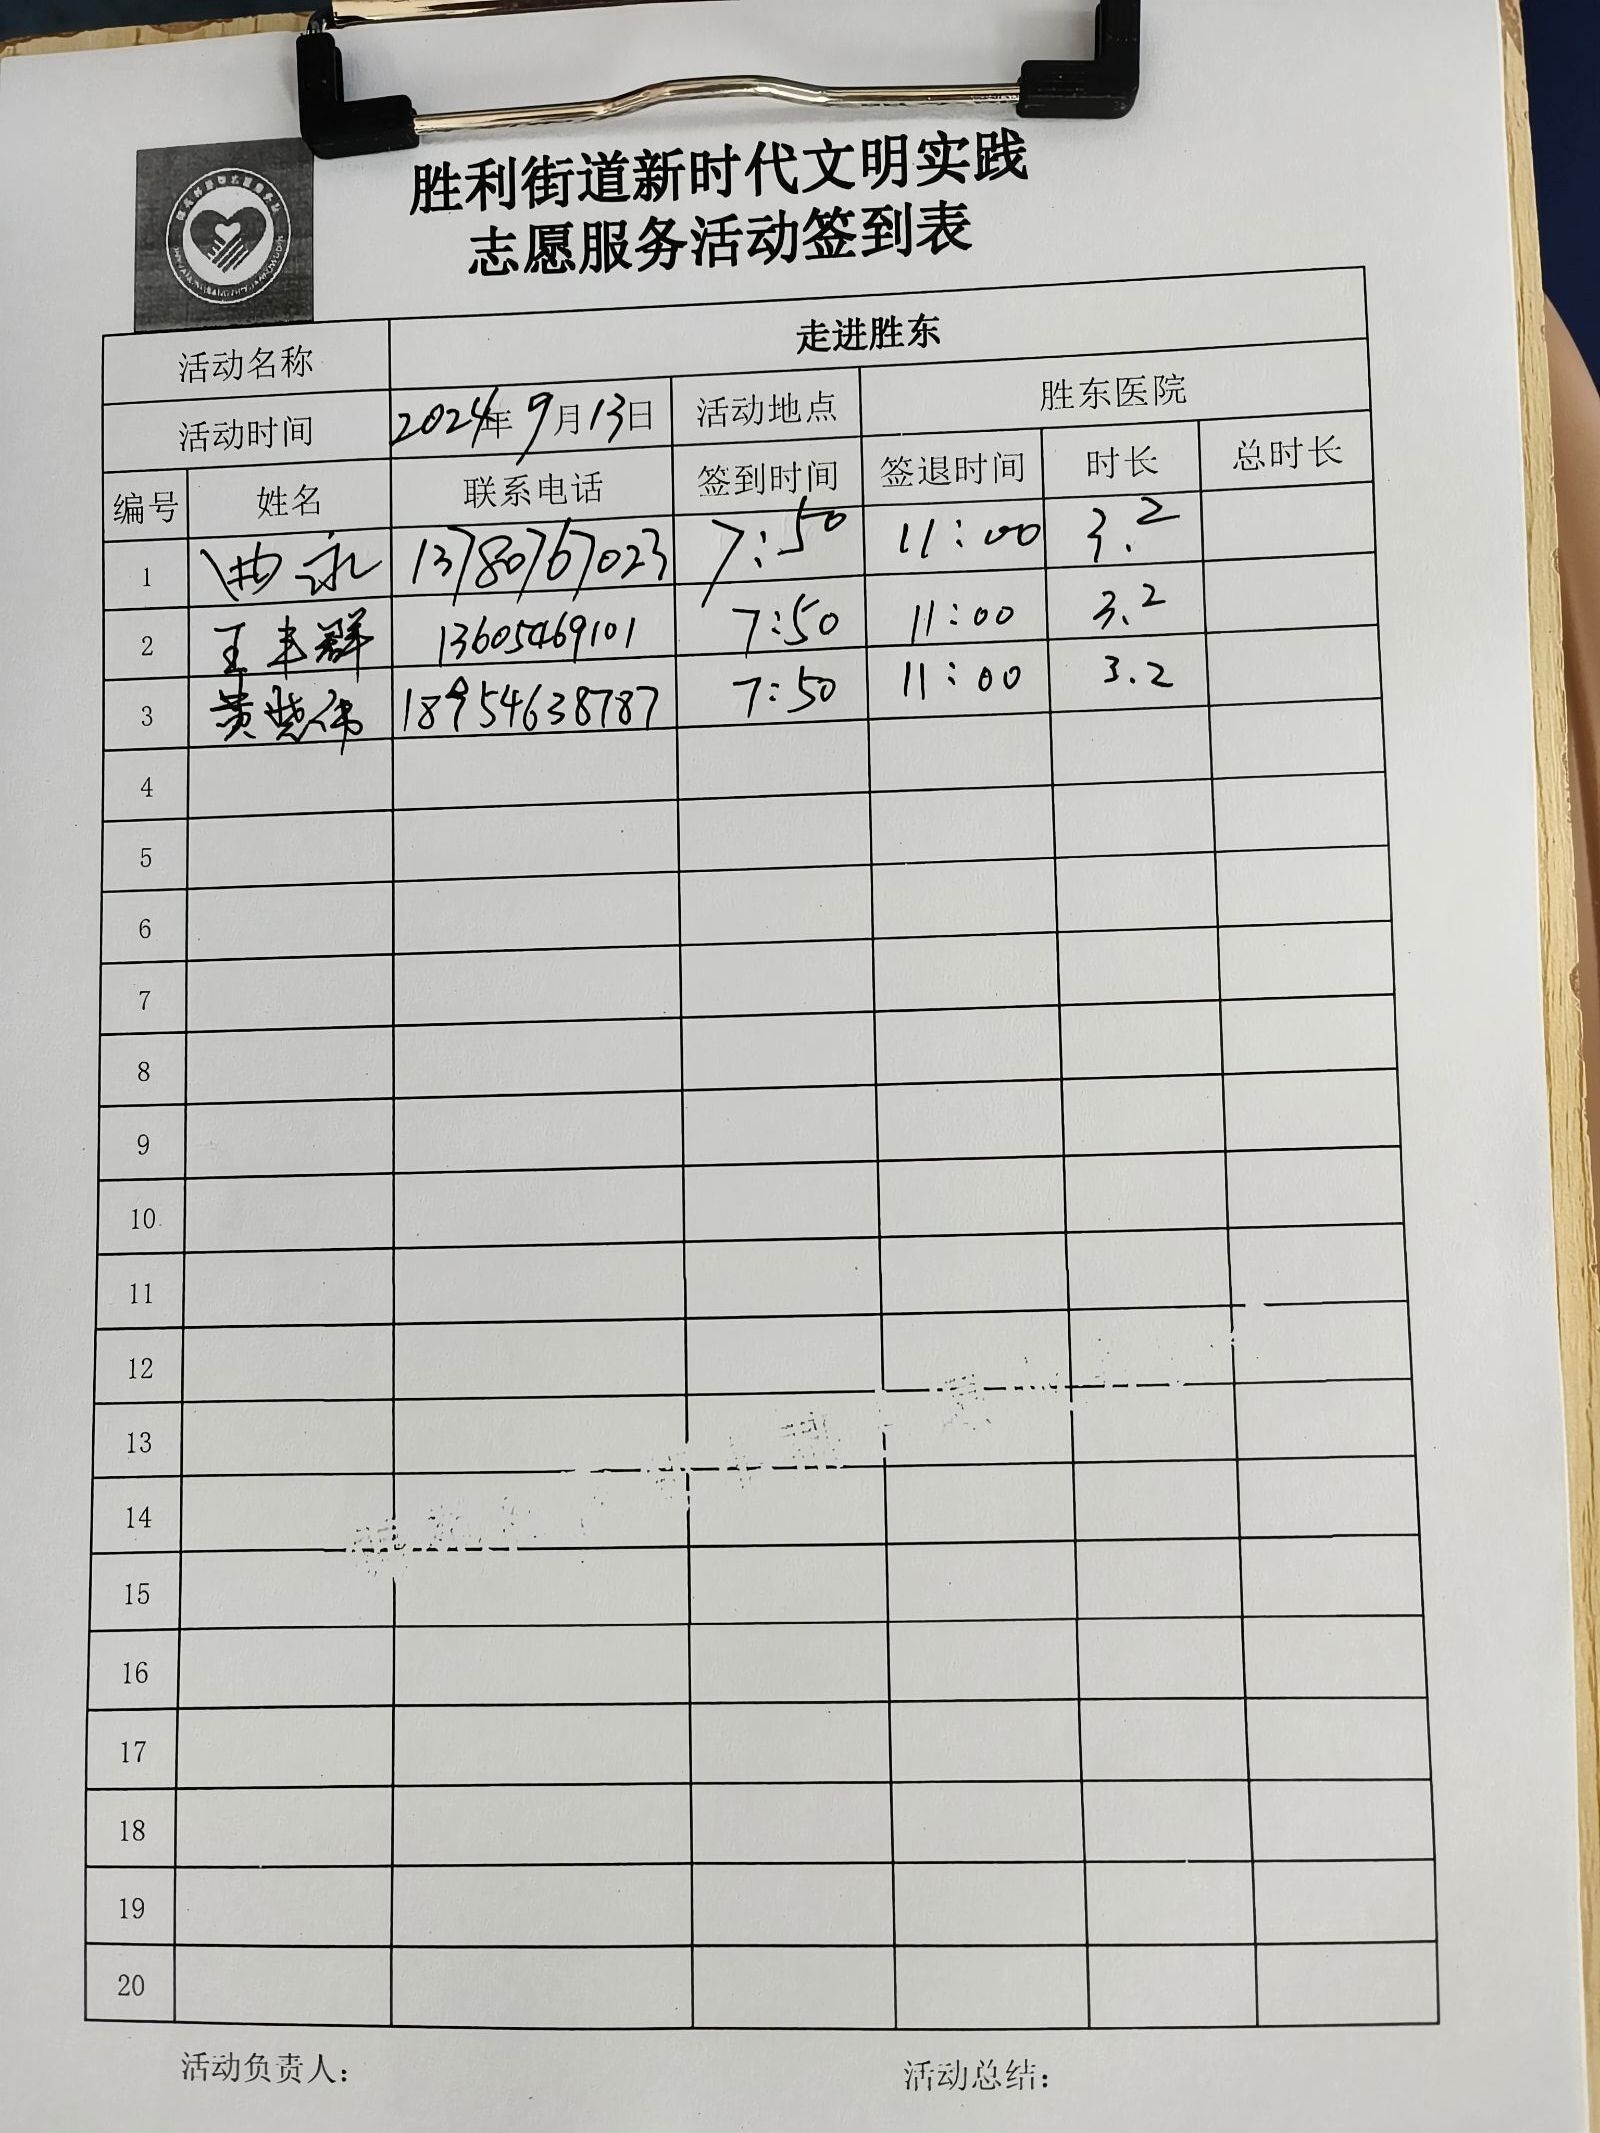 胜利街道新时代文明实践
志愿服务活动签到表
活动名称 走进胜东
活动时间 2024年9月13日 活动地点 胜东医院
编号 姓名 联系电话 签到时间 签退时间 时长 总时长
1 曲永 13780767023 7:50 11:00 3.2
2 王丰群 13605469101 7:50 11:00 3.2
3 黄 伟 18954638787 7:50 11:00 3.2
4
5
6
7
8
9
10
11
12
13
14
15
16
17
18
19
20
活动负责人： 活动总结：